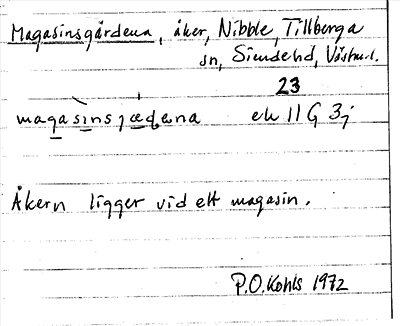 Magasinsgärdena, åker, Nibble, Tillberga
sn, Siende hd, Västml.
23
magasinsjædena ek 11 G 3j
Åkern ligger vid ett magasin.
P.O. Kohls 1972